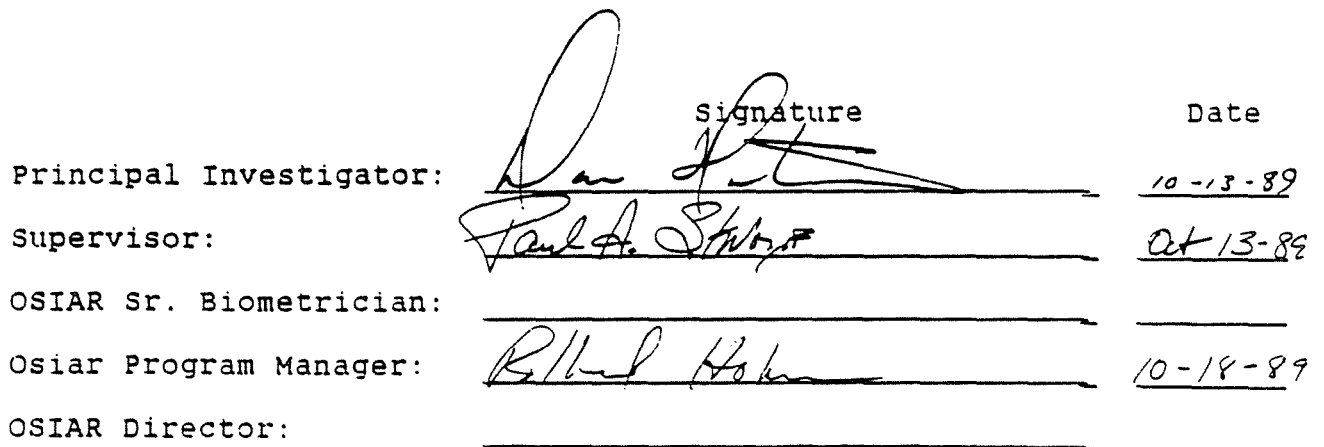 Signature Date
Principal Investigator: 10-13-89
Supervisor: Paul A. Oct 13-89
OSIAR Sr. Biometrician:
Osiar Program Manager: 10-18-89
OSIAR Director: